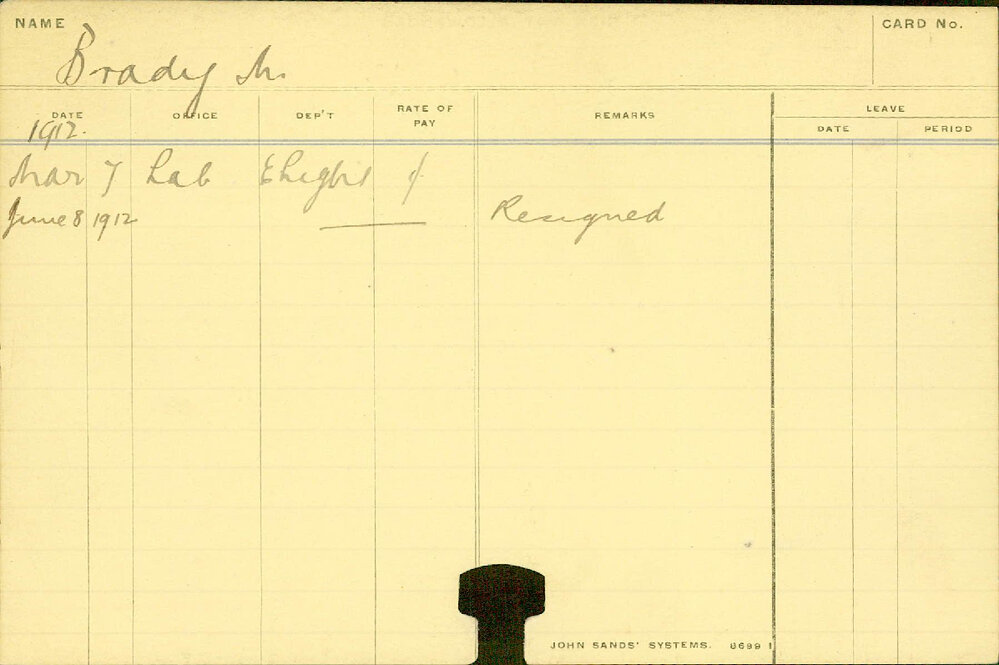 NAME
CARD No.
Brady M.
DATE OFFICE DEP'T RATE OF PAY REMARKS LEAVE
DATE PERIOD
1912.
Mar 7 Lab
June 8 1912 Resigned
JOHN SANDS' SYSTEMS. 8699 1